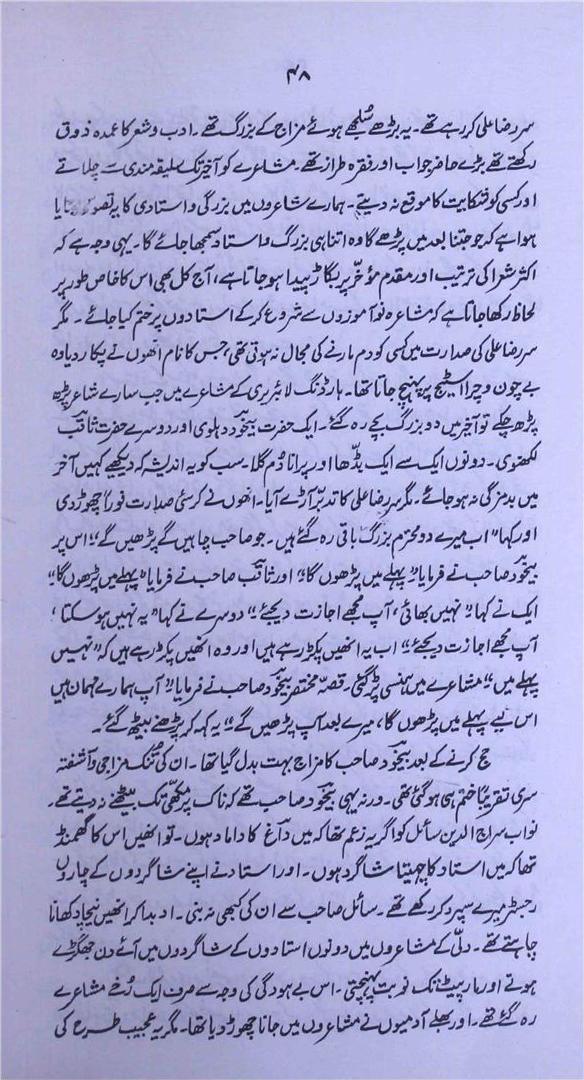 ۴۸
سر رضا علی کر رہے تھے۔ یہ بڑے سُلجھے ہوئے مزاج کے بزرگ تھے۔ ادب و شعر کا عمدہ ذوق
رکھتے تھے بڑے حاضر جواب اور فقرہ طراز تھے۔ مشاعرے کو آخر تک سلیقہ مندی سے چلاتے
اور کسی کو شکایت کا موقع نہ دیتے۔ ہمارے شاعروں میں بزرگی و استادی کا یہ تصور
ہوا ہے کہ جو جتنا بعد میں پڑھے گا وہ اتنا ہی بزرگ و استاد سمجھا جائے گا۔ یہی وجہ ہے کہ
اکثر شعرا کی ترتیب اور مقدم مؤخر پر بگاڑ پیدا ہو جاتا ہے، آج کل بھی اس کا خاص طور پر
لحاظ رکھا جاتا ہے کہ مشاعرہ نو آموزوں سے شروع کر کے استادوں پر ختم کیا جائے۔ مگر
سر رضا علی کی صدارت میں کسی کو دم مارنے کی مجال نہ ہوتی تھی، جس کا نام انھوں نے پکار دیا وہ
بے چون و چرا اسٹیج پر پہنچ جاتا تھا۔ ہارڈنگ لائبریری کے مشاعرے میں جب سارے شاعر پڑھ
پڑھ چکے تو آخر میں دو بزرگ بچے رہ گئے۔ ایک حضرت بیخود دہلوی اور دوسرے حضرت ثاقب
لکھنوی۔ دونوں ایک سے ایک بڈھا اور پرانا دُم گلا۔ سب کو یہ اندیشہ کہ دیکھیے کہیں آخر
میں بدمزگی نہ ہو جائے۔ مگر سر رضا علی کا تدبّر آڑے آیا۔ انھوں نے کرسیٔ صدارت فوراً چھوڑ دی
اور کہا "اب میرے دو محترم بزرگ باقی رہ گئے ہیں۔ جو صاحب چاہیں گے پڑھیں گے"؛ اس پر
بیخود صاحب نے فرمایا "پہلے میں پڑھوں گا"؛ اور ثاقب صاحب نے فرمایا "پہلے میں پڑھوں گا"
ایک نے کہا "نہیں بھائی، آپ مجھے اجازت دیجئے" دوسرے نے کہا "یہ نہیں ہو سکتا،
آپ مجھے اجازت دیجئے" اب یہ انھیں پکڑ رہے ہیں اور وہ انھیں پکڑ رہے ہیں کہ "نہیں
پہلے میں" مشاعرے میں ہنسی پڑ گئی۔ قصہ مختصر بیخود صاحب نے فرمایا "آپ ہمارے مہمان ہیں
اس لیے پہلے میں پڑھوں گا، میرے بعد آپ پڑھیں گے" یہ کہہ کر پڑھنے بیٹھ گئے۔
حج کرنے کے بعد بیخود صاحب کا مزاج بہت بدل گیا تھا۔ ان کی تُنک مزاجی و آشفتہ
سری تقریباً ختم ہی ہو گئی تھی۔ ورنہ یہی بیخود صاحب تھے کہ ناک پر مکھّی تک بیٹھنے نہ دیتے تھے۔
نواب سراج الدین سائل کو اگر یہ زعم تھا کہ میں داغ کا داماد ہوں۔ تو انھیں اس کا گھمنڈ
تھا کہ میں استاد کا چہیتا شاگرد ہوں۔ اور استاد نے اپنے شاگردوں کے چاروں
رجسٹر میرے سپرد کر رکھے تھے۔ سائل صاحب سے ان کی کبھی نہ بنی۔ ادبدا کر انھیں نیچا دکھانا
چاہتے تھے۔ دلّی کے مشاعروں میں دونوں استادوں کے شاگردوں میں آئے دن جھگڑے
ہوتے اور مار پیٹ تک نوبت پہنچتی۔ اس بے ہودگی کی وجہ سے صرف ایک رُخے مشاعرے
رہ گئے تھے۔ اور بھلے آدمیوں نے مشاعروں میں جانا چھوڑ دیا تھا۔ مگر یہ عجیب طرح کی